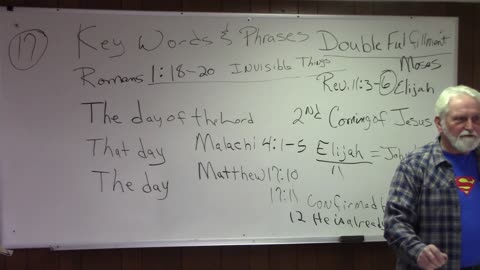 17 Key Words & Phrases Double Fulfillment
Romans 1:18-20 Invisible Things
Moses
Rev. 11:3-6 Elijah
The day of the Lord 2nd Coming of Jesus
That day Malachi 4:1-5 Elijah = "John
The day Matthew 17:10 11
17:11 Confirmed
12 He is already
S